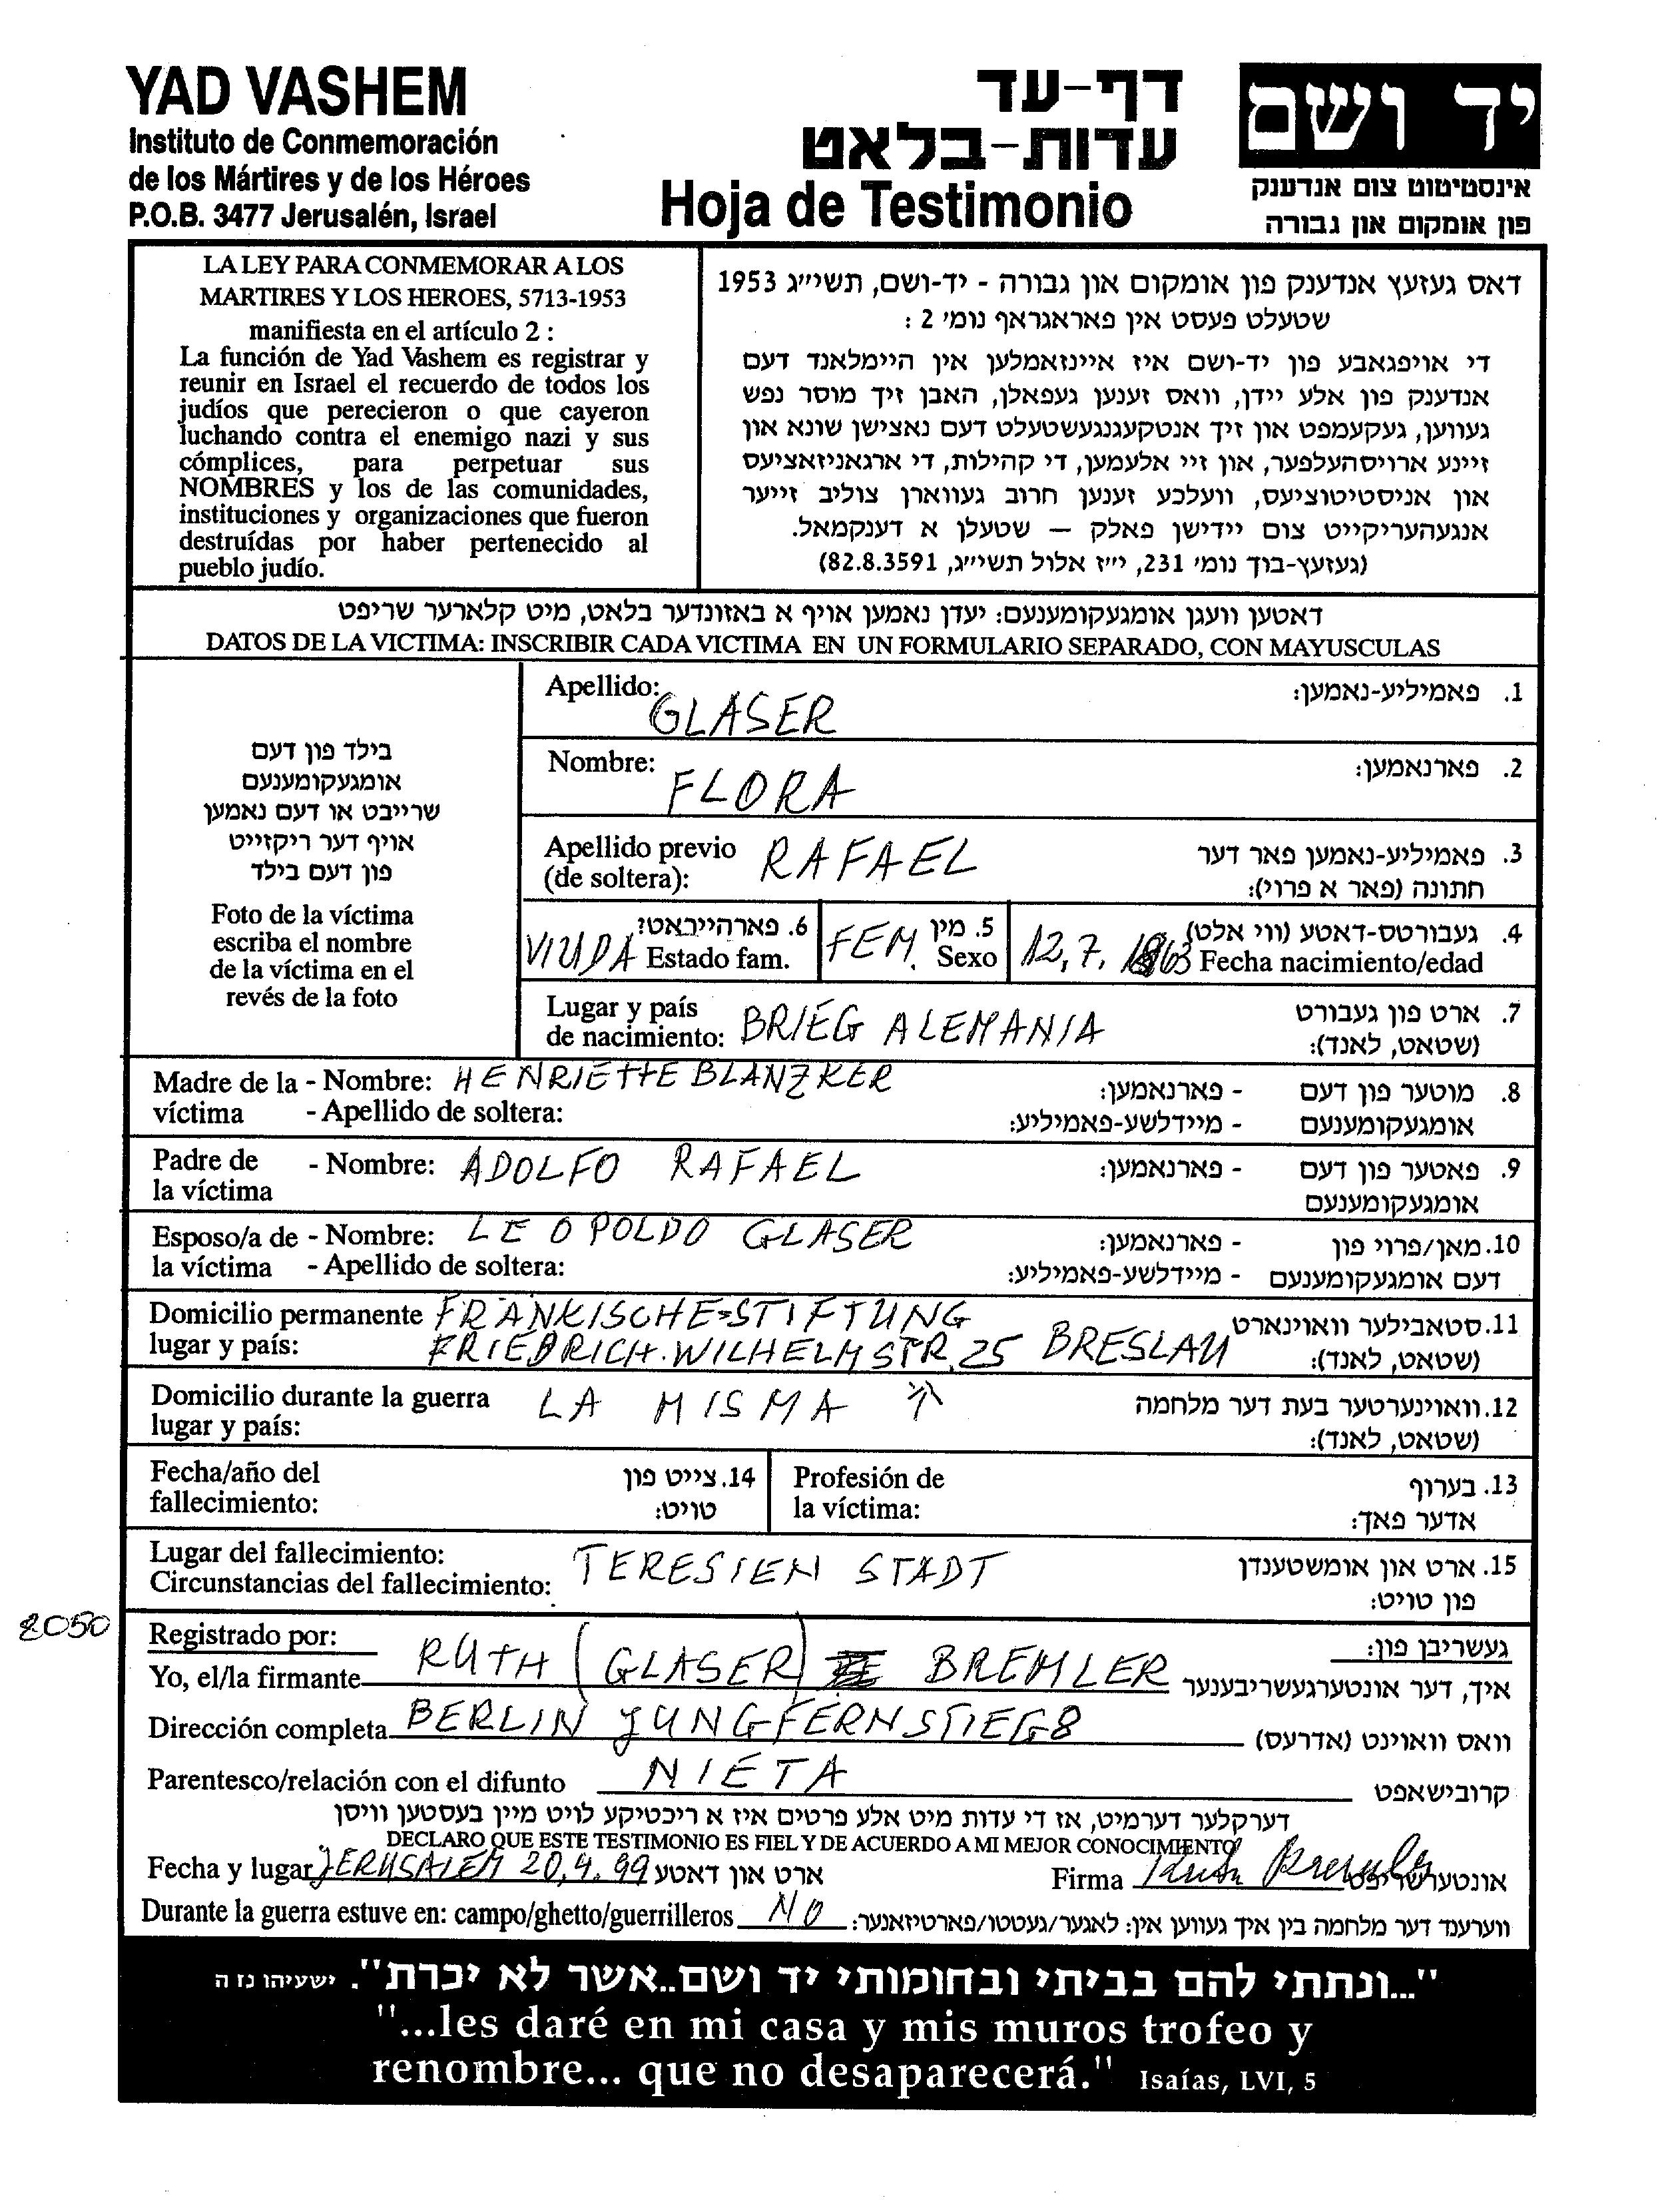 YAD VASHEM
Instituto de Conmemoración
de los Mártires y de los Héroes
P.O.B. 3477 Jerusalén, Israel
דף-עד
עדות-בלאט
Hoja de Testimonio
יד ושם
אינסטיטוט צום אנדענק
פון אומקום און גבורה
LA LEY PARA CONMEMORAR A LOS
MARTIRES Y LOS HEROES, 5713-1953
manifiesta en el artículo 2 :
La función de Yad Vashem es registrar y
reunir en Israel el recuerdo de todos los
judíos que perecieron o que cayeron
luchando contra el enemigo nazi y sus
cómplices, para perpetuar sus
NOMBRES y los de las comunidades,
instituciones y organizaciones que fueron
destruídas por haber pertenecido al
pueblo judío.
דאס געזעץ אנדענק פון אומקום און גבורה - יד-ושם, תשי״ג 1953
שטעלט פעסט אין פאראגראף נומ׳ 2 :
די אויפגאבע פון יד-ושם איז איינזאמלען אין היימלאנד דעם
אנדענק פון אלע יידן, וואס זענען געפאלן, האבן זיך מוסר נפש
געווען, געקעמפט און זיך אנטקעגנגעשטעלט דעם נאצישן שונא און
זיינע ארויסהעלפער, און זיי אלעמען, די קהילות, די ארגאניזאציעס
און אניסטיטוציעס, וועלכע זענען חרוב געווארן צוליב זייער
אנגעהעריקייט צום יידישן פאלק – שטעלן א דענקמאל.
(געזעץ-בוך נומ׳ 231, י״ז אלול תשי״ג, 82.8.3591)
דאטען וועגן אומגעקומענעם: יעדן נאמען אויף א באזונדער בלאט, מיט קלארער שריפט
DATOS DE LA VICTIMA: INSCRIBIR CADA VICTIMA EN UN FORMULARIO SEPARADO, CON MAYUSCULAS
בילד פון דעם
אומגעקומענעם
שרייבט או דעם נאמען
אויף דער ריקזייט
פון דעם בילד
Foto de la víctima
escriba el nombre
de la víctima en el
revés de la foto
Apellido: GLASER 1. פאמיליע-נאמען:
Nombre: FLORA 2. פארנאמען:
Apellido previo RAFAEL 3. פאמיליע-נאמען פאר דער
(de soltera): חתונה (פאר א פרוי):
6. פארהייראט? 5. מין 4. געבורטס-דאטע (ווי אלט)
VIUDA Estado fam. FEM. Sexo 12,7, 1863 Fecha nacimiento/edad
Lugar y país 7. ארט פון געבורט
de nacimiento: BRIEG ALEMANIA (שטאט, לאנד):
Madre de la - Nombre: HENRIETTE BLANZKER 8. מוטער פון דעם - פארנאמען:
víctima - Apellido de soltera: אומגעקומענעם - מיידלשע-פאמיליע:
Padre de - Nombre: ADOLFO RAFAEL 9. פאטער פון דעם - פארנאמען:
la víctima אומגעקומענעם
Esposo/a de - Nombre: LEOPOLDO GLASER 10. מאן/פרוי פון - פארנאמען:
la víctima - Apellido de soltera: דעם אומגעקומענעם - מיידלשע-פאמיליע:
Domicilio permanente FRÄNKISCHE=STIFTUNG 11. סטאבילער וואוינארט
lugar y país: FRIEDRICH.WILHELMSTR.25 BRESLAU (שטאט, לאנד):
Domicilio durante la guerra LA MISMA ↑ 12. וואוינערטער בעת דער מלחמה
lugar y país: (שטאט, לאנד):
Fecha/año del 14. צייט פון Profesión de 13. בערוף
fallecimiento: טויט: la víctima: אדער פאך:
Lugar del fallecimiento: TERESIEN STADT 15. ארט און אומשטענדן
Circunstancias del fallecimiento: פון טויט:
2050
Registrado por: געשריבן פון:
Yo, el/la firmante RUTH (GLASER) BREMLER איך, דער אונטערגעשריבענער
Dirección completa BERLIN JUNGFERNSTIEG8 וואס וואוינט (אדרעס)
Parentesco/relación con el difunto NIETA קרובישאפט
דערקלער דערמיט, אז די עדות מיט אלע פרטים איז א ריכטיקע לויט מיין בעסטען וויסן
DECLARO QUE ESTE TESTIMONIO ES FIEL Y DE ACUERDO A MI MEJOR CONOCIMIENTO
Fecha y lugar JERUSALEM 20,4.99 ארט און דאטע Firma Ruth Bremler אונטערשריפט
Durante la guerra estuve en: campo/ghetto/guerrilleros NO ווערענד דער מלחמה בין איך געווען אין: לאגער/געטטו/פארטיזאנער:
"...ונתתי להם בביתי ובחומותי יד ושם..אשר לא יכרת". ישעיהו נז ה
"...les daré en mi casa y mis muros trofeo y
renombre... que no desaparecerá." Isaías, LVI, 5